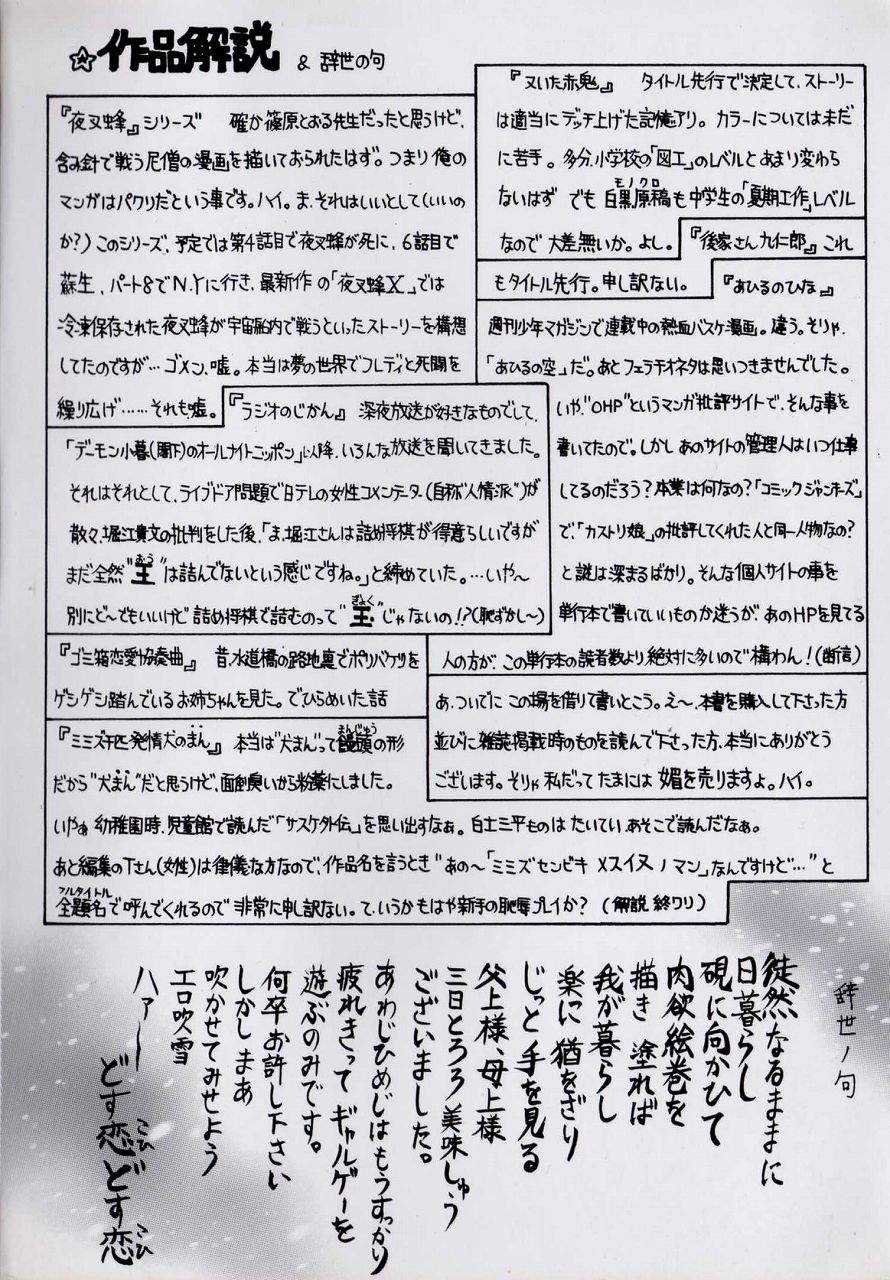 ☆作品解説 & 辞世の句
『夜叉蜂』シリーズ 確か篠原とおる先生だったと思うけど、
含み針で戦う尼僧の漫画を描いておられたはず。つまり俺の
マンガはパクリだという事です。ハイ。ま、それはいいとして(いいの
か?)このシリーズ、予定では第4話目で夜叉蜂が死に、6話目で
蘇生、パート8でN.Yに行き、最新作の「夜叉蜂X」では
冷凍保存された夜叉蜂が宇宙船内で戦うといったストーリーを構想
してたのですが…ゴメン、嘘。本当は夢の世界でフレディと死闘を
繰り広げ……それも嘘。
『ラジオのじかん』 深夜放送が好きなものでして、
「デーモン小暮(閣下)のオールナイトニッポン」以降、いろんな放送を聞いてきました。
それはそれとして、ライブドア問題で日テレの女性コメンテーター(自称"人情派")が
散々、堀江貴文の批判をした後、「ま、堀江さんは詰め将棋が得意らしいですが
まだ全然"王"は詰んでないという感じですね。」と締めていた。…いや〜
おう
別にど〜でもいいけど詰め将棋で詰むのって"玉"じゃないの!?(恥ずかし〜)
ぎょく
『ゴミ箱恋愛協奏曲』 昔、水道橋の路地裏でポリバケツを
ゲシゲシ踏んでいるお姉ちゃんを見た。でひらめいた話
『ミミズ千匹発情犬のまん』 本当は"犬まん"って饅頭の形
まんじゅう
だから"犬まん"だと思うけど、面倒臭いから粉薬にしました。
いやぁ幼稚園時、児童館で読んだ「サスケ外伝」を思い出すなぁ。白土三平ものはたいてい、あそこで読んだなぁ。
あと編集のTさん(女性)は律儀な方なので、作品名を言うとき"あの〜「ミミズセンビキメスイヌノマン」なんですけど…"と
フルタイトル
全題名で呼んでくれるので非常に申し訳ない。て、いうかもはや新手の恥辱プレイか? (解説終ワリ)
『又いた赤鬼』 タイトル先行で決定して、ストーリー
は適当にデッチ上げた記憶アリ。カラーについては未だ
に苦手。多分、小学校の「図工」のレベルとあまり変わら
ないはず でも白黒原稿も中学生の「夏期工作」レベル
モノクロ
なので大差無いか。よし。
『後家さん九仁郎』 これ
もタイトル先行。申し訳ない。
『あひるのひな』
週刊少年マガジンで連載中の熱血バスケ漫画。違う。そりゃ、
「あひるの空」だ。あとフェラチオネタは思いつきませんでした。
いや、"OHP"というマンガ批評サイトで、そんな事を
書いてたので。しかしあのサイトの管理人はいつ仕事
してるのだろう?本業は何なの?「コミックジャンキーズ」
で、「カストリ娘」の批評してくれた人と同一人物なの?
と謎は深まるばかり。そんな個人サイトの事を
単行本で書いていいものか迷うが、あのHPを見てる
人の方が、この単行本の読者数より絶対に多いので構わん!(断信)
あ、ついでにこの場を借りて書いとこう。え〜、本書を購入して下さった方
並びに雑誌掲載時のものを読んで下さった方、本当にありがとう
ございます。そりゃ私だってたまには媚を売りますよ。ハイ。
辞世ノ句
徒然なるままに
日暮らし
硯に向かひて
肉欲絵巻を
描き 塗れば
我が暮らし
楽に猶をざり
じっと手を見る
父上様、母上様
三日とろろ美味しゅう
ございました。
あわじひめじはもうすっかり
疲れきってギャルゲーを
遊ぶのみです。
何卒お許し下さい
しかしまあ
吹かせてみせよう
エロ吹雪
ハァー
どす恋どす恋
こひ
こひ